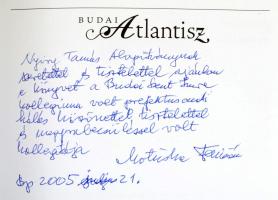 BUDAI
Atlantisz
Nyíry Tamás Alapítványnak
szeretettel és tisztelettel ajánlom
e könyvet a Budai Szent Imre
kollégium volt prefektusának
hálás köszönettel tisztelettel
és nagyrabecsüléssel volt
kollégája
Bp 2005 július 21.